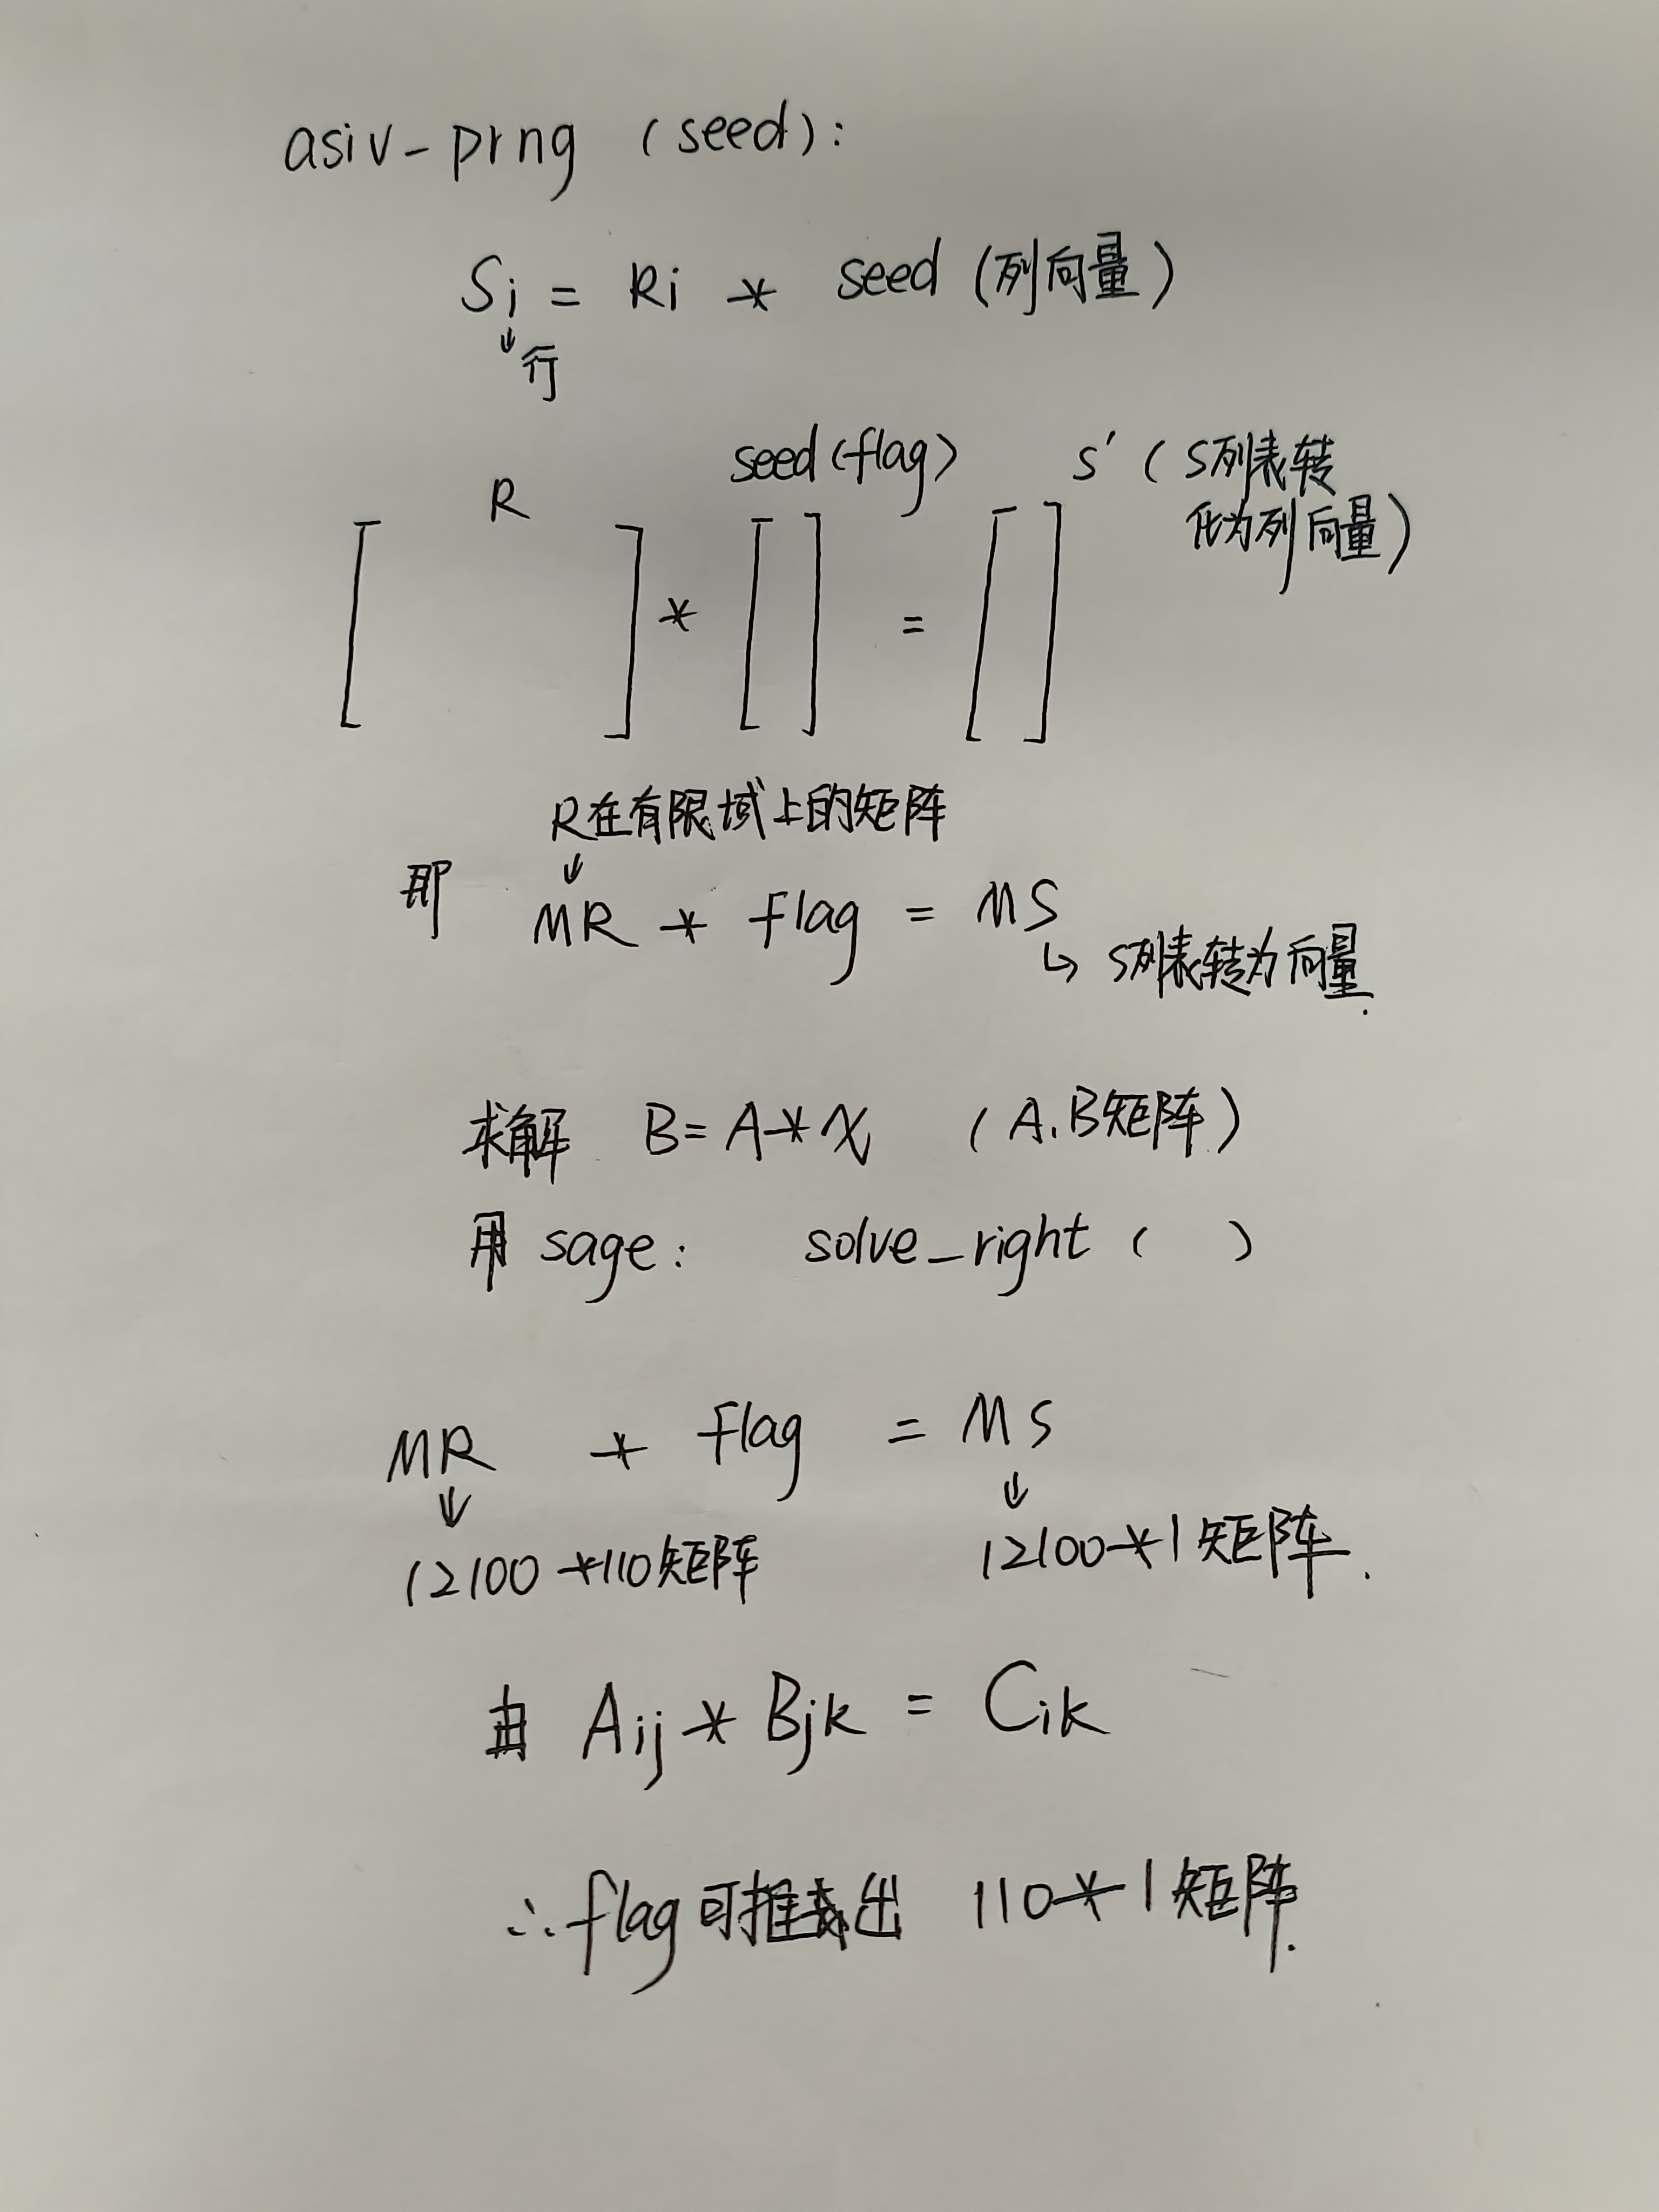 asiv-prng (seed):
Si = Ri * seed (列向量)
↓行
R seed(flag) s' (S列表转
化为列向量)
[ ] * [ ] = [ ]
R在有限域上的矩阵
↓
即 MR * flag = MS
↳ S列表转为向量.
求解 B=A*x (A.B矩阵)
用 sage: solve_right ( )
MR * flag = MS
↓ ↓
12100*110矩阵 12100*1矩阵.
由 Aij * Bjk = Cik
∴flag可推出 110*1矩阵.